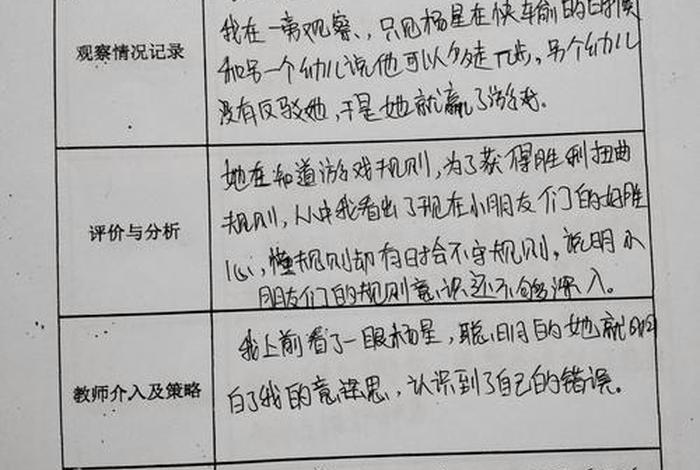 我在一旁观察、,只见杨星在快车前的时候
观察情况记录
和另一个幼儿说他可以多走几步,另个幼儿
没有反驳她,于是她就赢了游戏.
她在知道游戏规则,为了获得胜利扭曲
规则,从中我看出了现在小朋友们的好胜
评价与分析
心,懂规则却有时会不守规则,说明小
朋友们的规则意识还不够深入。
我上前看了一眼杨星,聪明的她就明
教师介入及策略
白了我的意思,认识到了自己的错误。